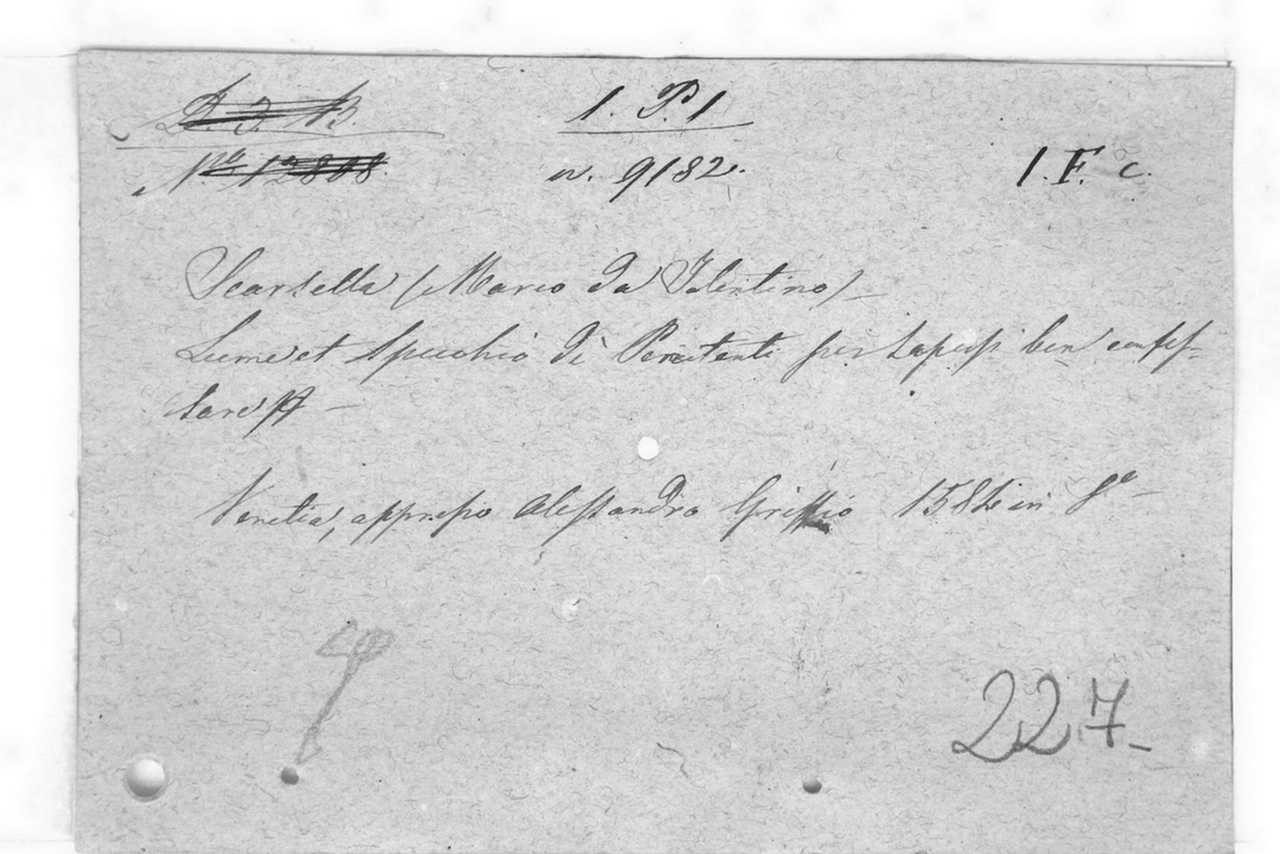 1. P. 1
n. 9182.
1. F. c.
Scarsella (Marco da Tolentino) —
Lume et specchio di Penitenti per sapersi ben confes-
sare
Venetia, appresso Alessandro Griffio 1584 in 8º —
227 —